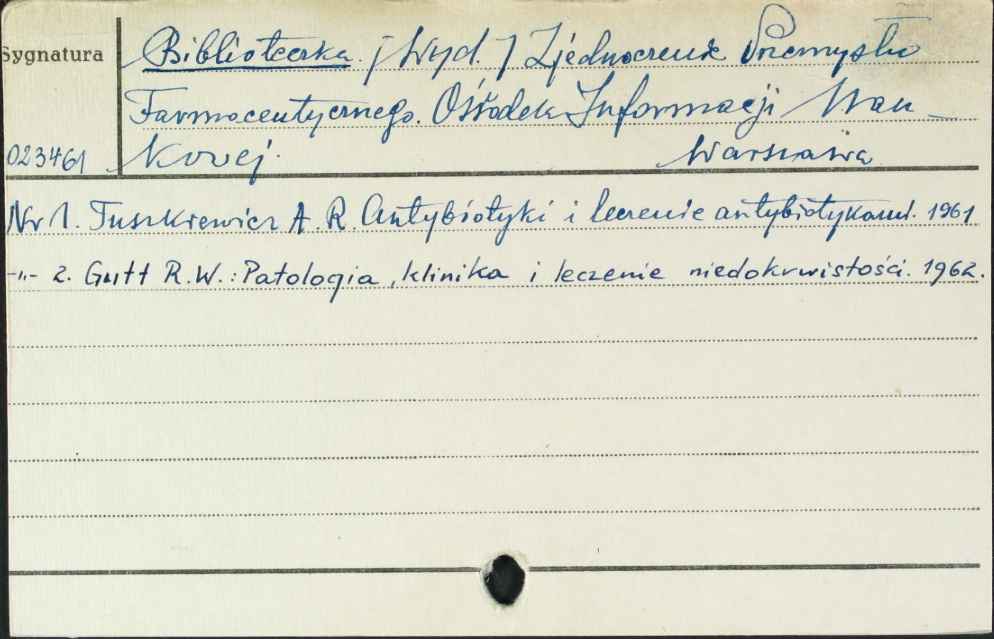 Sygnatura
Biblioteczka. [Wyd.] Zjednoczenie Przemysłu
Farmaceutycznego. Ośrodek Informacji Nau-
023461 kowej. Warszawa
Nr 1. Tuszkiewicz A. R. Antybiotyki i leczenie antybiotykami. 1961
-"- 2. Gutt R.W.: Patologia, klinika i leczenie niedokrwistości. 1962.